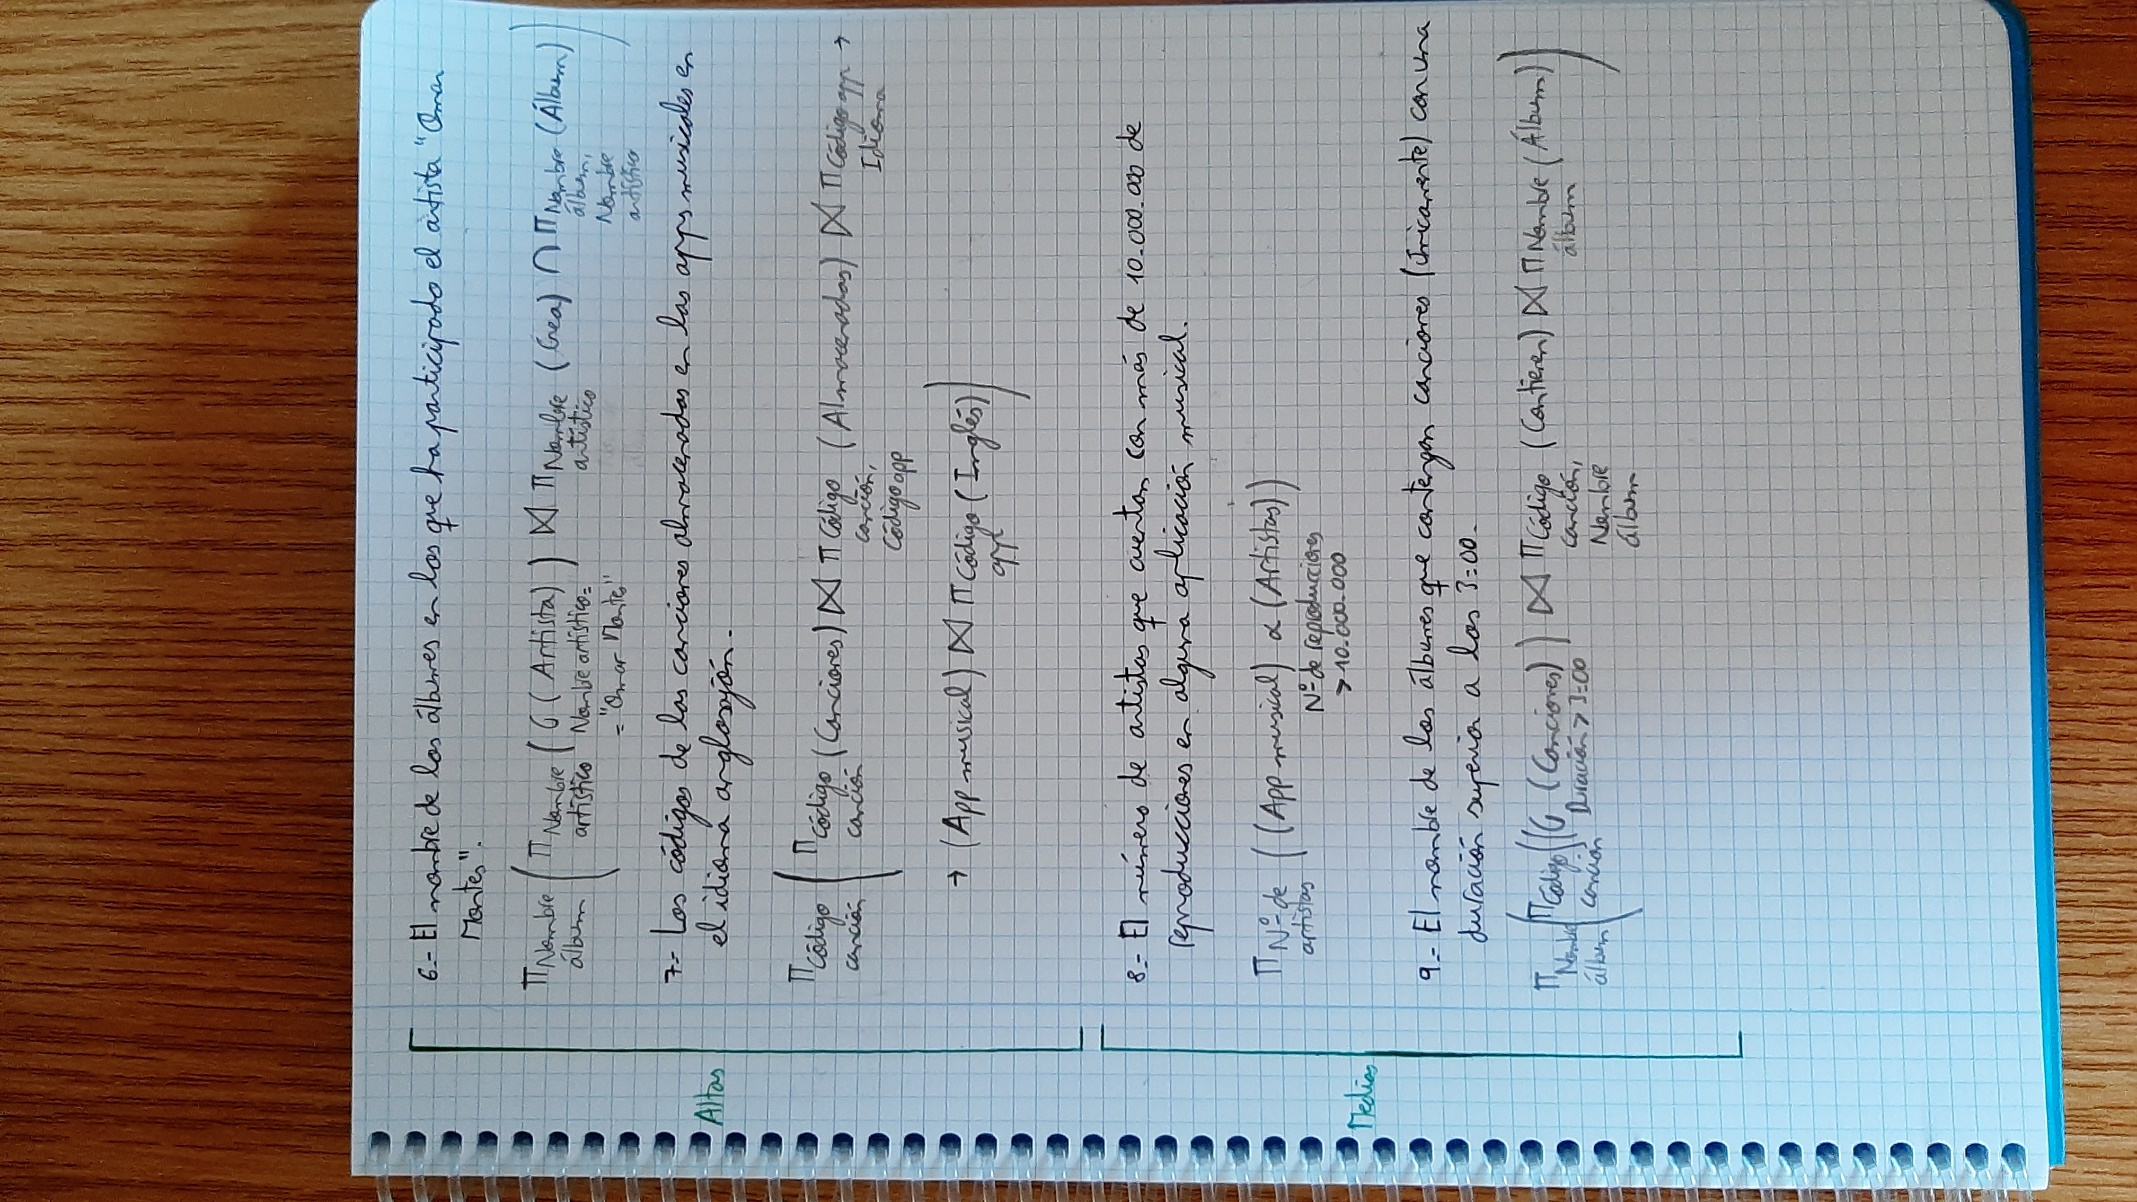 6.- El nombre de los álbumes en los que ha participado el artista "Omar
Montes".
Π Nombre álbum ( Π Nombre artístico ( σ ( Artista) ) ⋈ Π Nombre artístico (Crea) ∩ Π Nombre álbum, Nombre artístico (Álbum) )
Nombre artístico=
= "Omar Montes"
Altas
7.- Los códigos de las canciones almacenadas en las apps musicales en
el idioma anglosajón.
Π Código canción ( Π Código canción (Canciones) ⋈ Π Código canción, Código app (Almacenadas) ⋈ Π Código app → Idioma
→ (App musical) ⋈ Π Código app (Inglés) )
8.- El número de artistas que cuentan con más de 10.000.000 de
reproducciones en alguna aplicación musical.
Π Nº de artistas ( (App musical) α (Artistas) )
Nº de reproducciones
> 10.000.000
Medias
9.- El nombre de los álbumes que contengan canciones (únicamente) con una
duración superior a los 3:00.
Π Nombre álbum ( Π Código canción ( (σ (Canciones) ) ⋈ Π Código canción, Nombre álbum (Contienen) ⋈ Π Nombre álbum (Álbum) )
Duración > 3:00